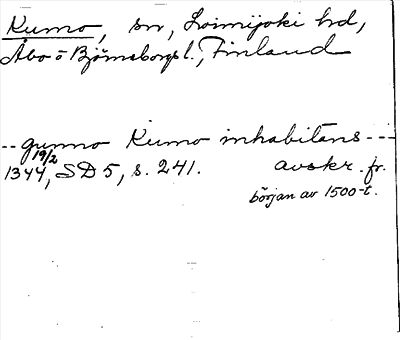 Kumo, sn, Loimijoki hd,
Åbo o Björneborgs l., Finland
-- gumno Kumo inhabitans ---
19/2
1344, SD 5, s. 241. avskr. fr.
början av 1500-t.